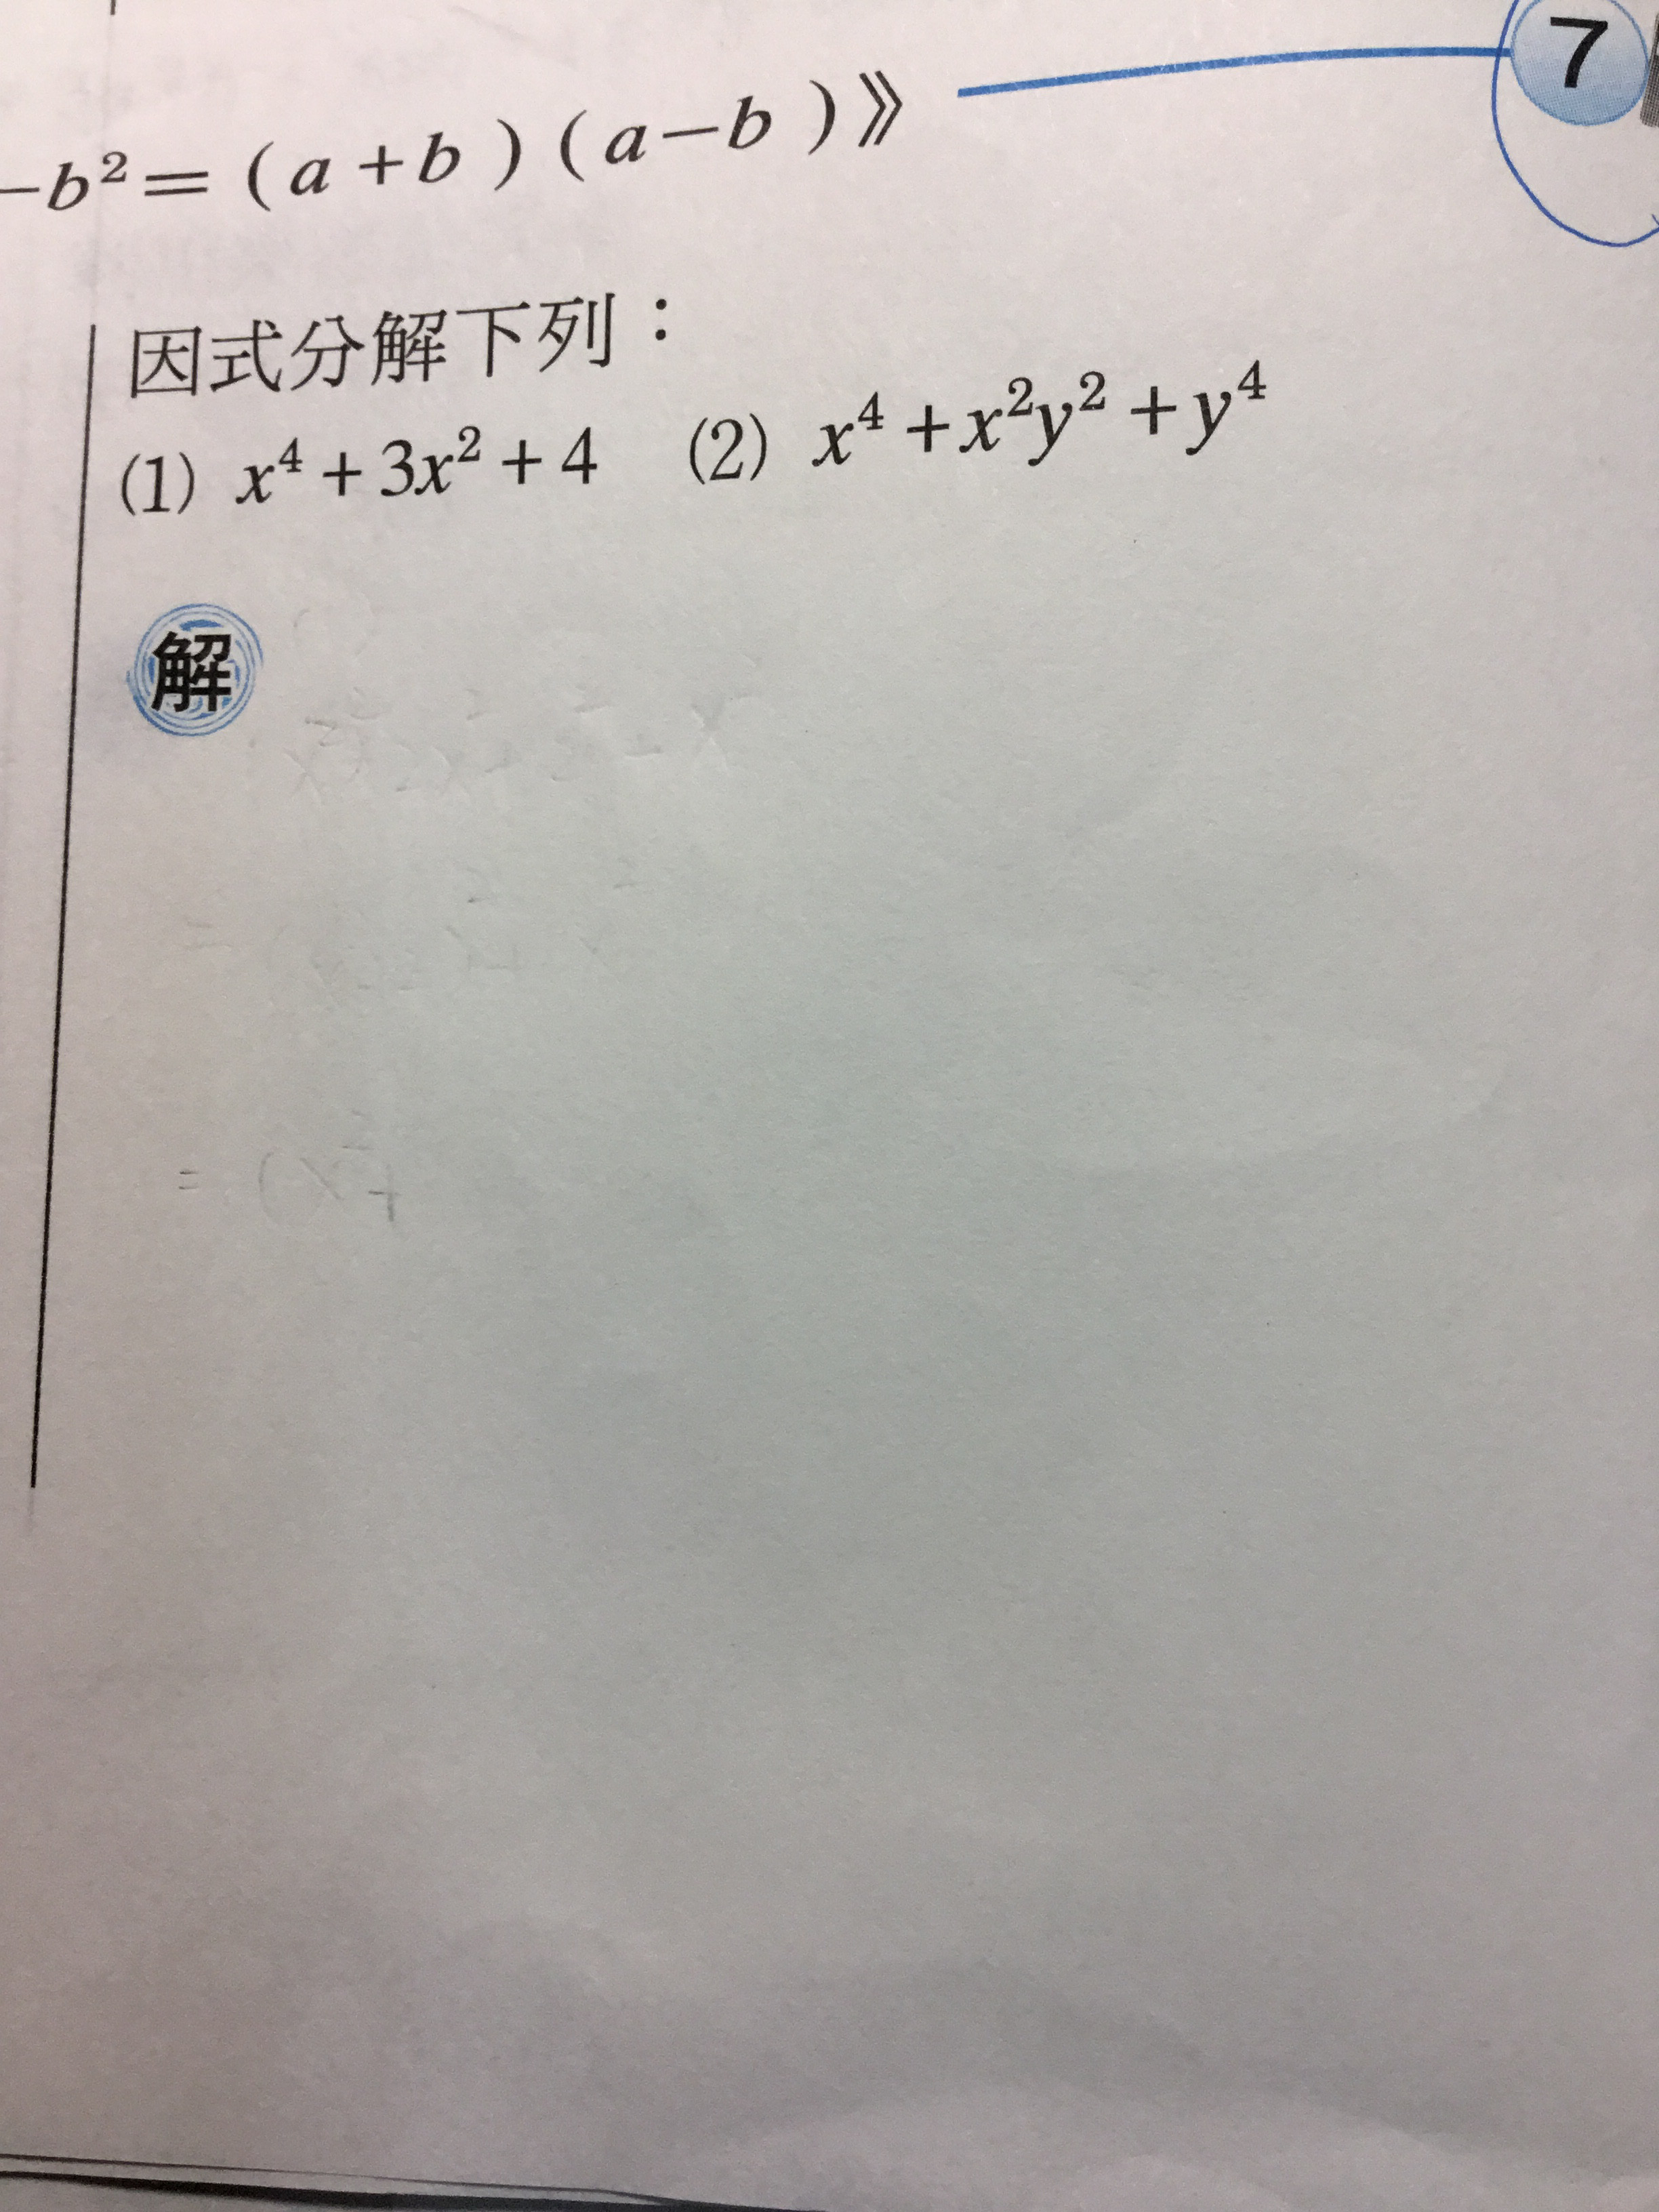 7
−b²=(a+b)(a−b)》
因式分解下列：
(1) x⁴+3x²+4 (2) x⁴+x²y²+y⁴
解